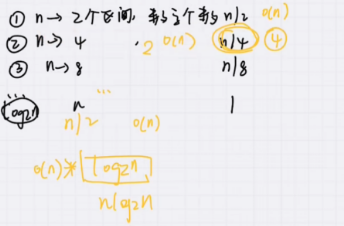 ① n → 2个区间, 每个 n/2 O(n)
② n → 4 2 O(n) n/4 ④
③ n → 8 n/8
... ...
log2n n 1
n/2 O(n)
O(n) * log2n
nlog2n